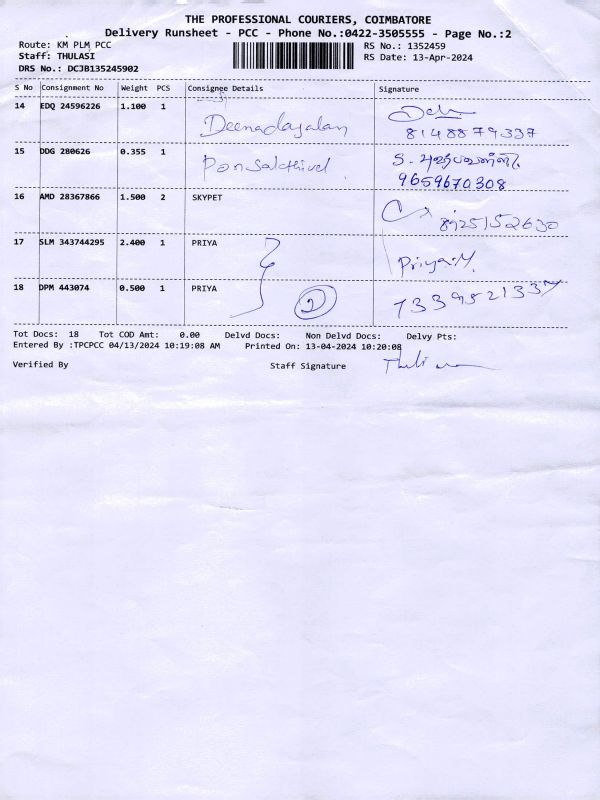 THE PROFESSIONAL COURIERS, COIMBATORE
Delivery Runsheet - PCC - Phone No.:0422-3505555 - Page No.:2
Route: KM PLM PCC RS No.: 1352459
Staff: THULASI RS Date: 13-Apr-2024
DRS No.: DCJB135245902
S No Consignment No Weight PCS Consignee Details Signature
14 EDQ 24596226 1.100 1 Deenadayalan
8148879337
15 DDG 280626 0.355 1 Ponsakthivel
9659670308
16 AMD 28367866 1.500 2 SKYPET
8925152630
17 SLM 343744295 2.400 1 PRIYA
Priya.M.
18 DPM 443074 0.500 1 PRIYA 2 7339521337
Tot Docs: 18 Tot COD Amt: 0.00 Delvd Docs: Non Delvd Docs: Delvy Pts:
Entered By :TPCPCC 04/13/2024 10:19:08 AM Printed On: 13-04-2024 10:20:08
Verified By Staff Signature